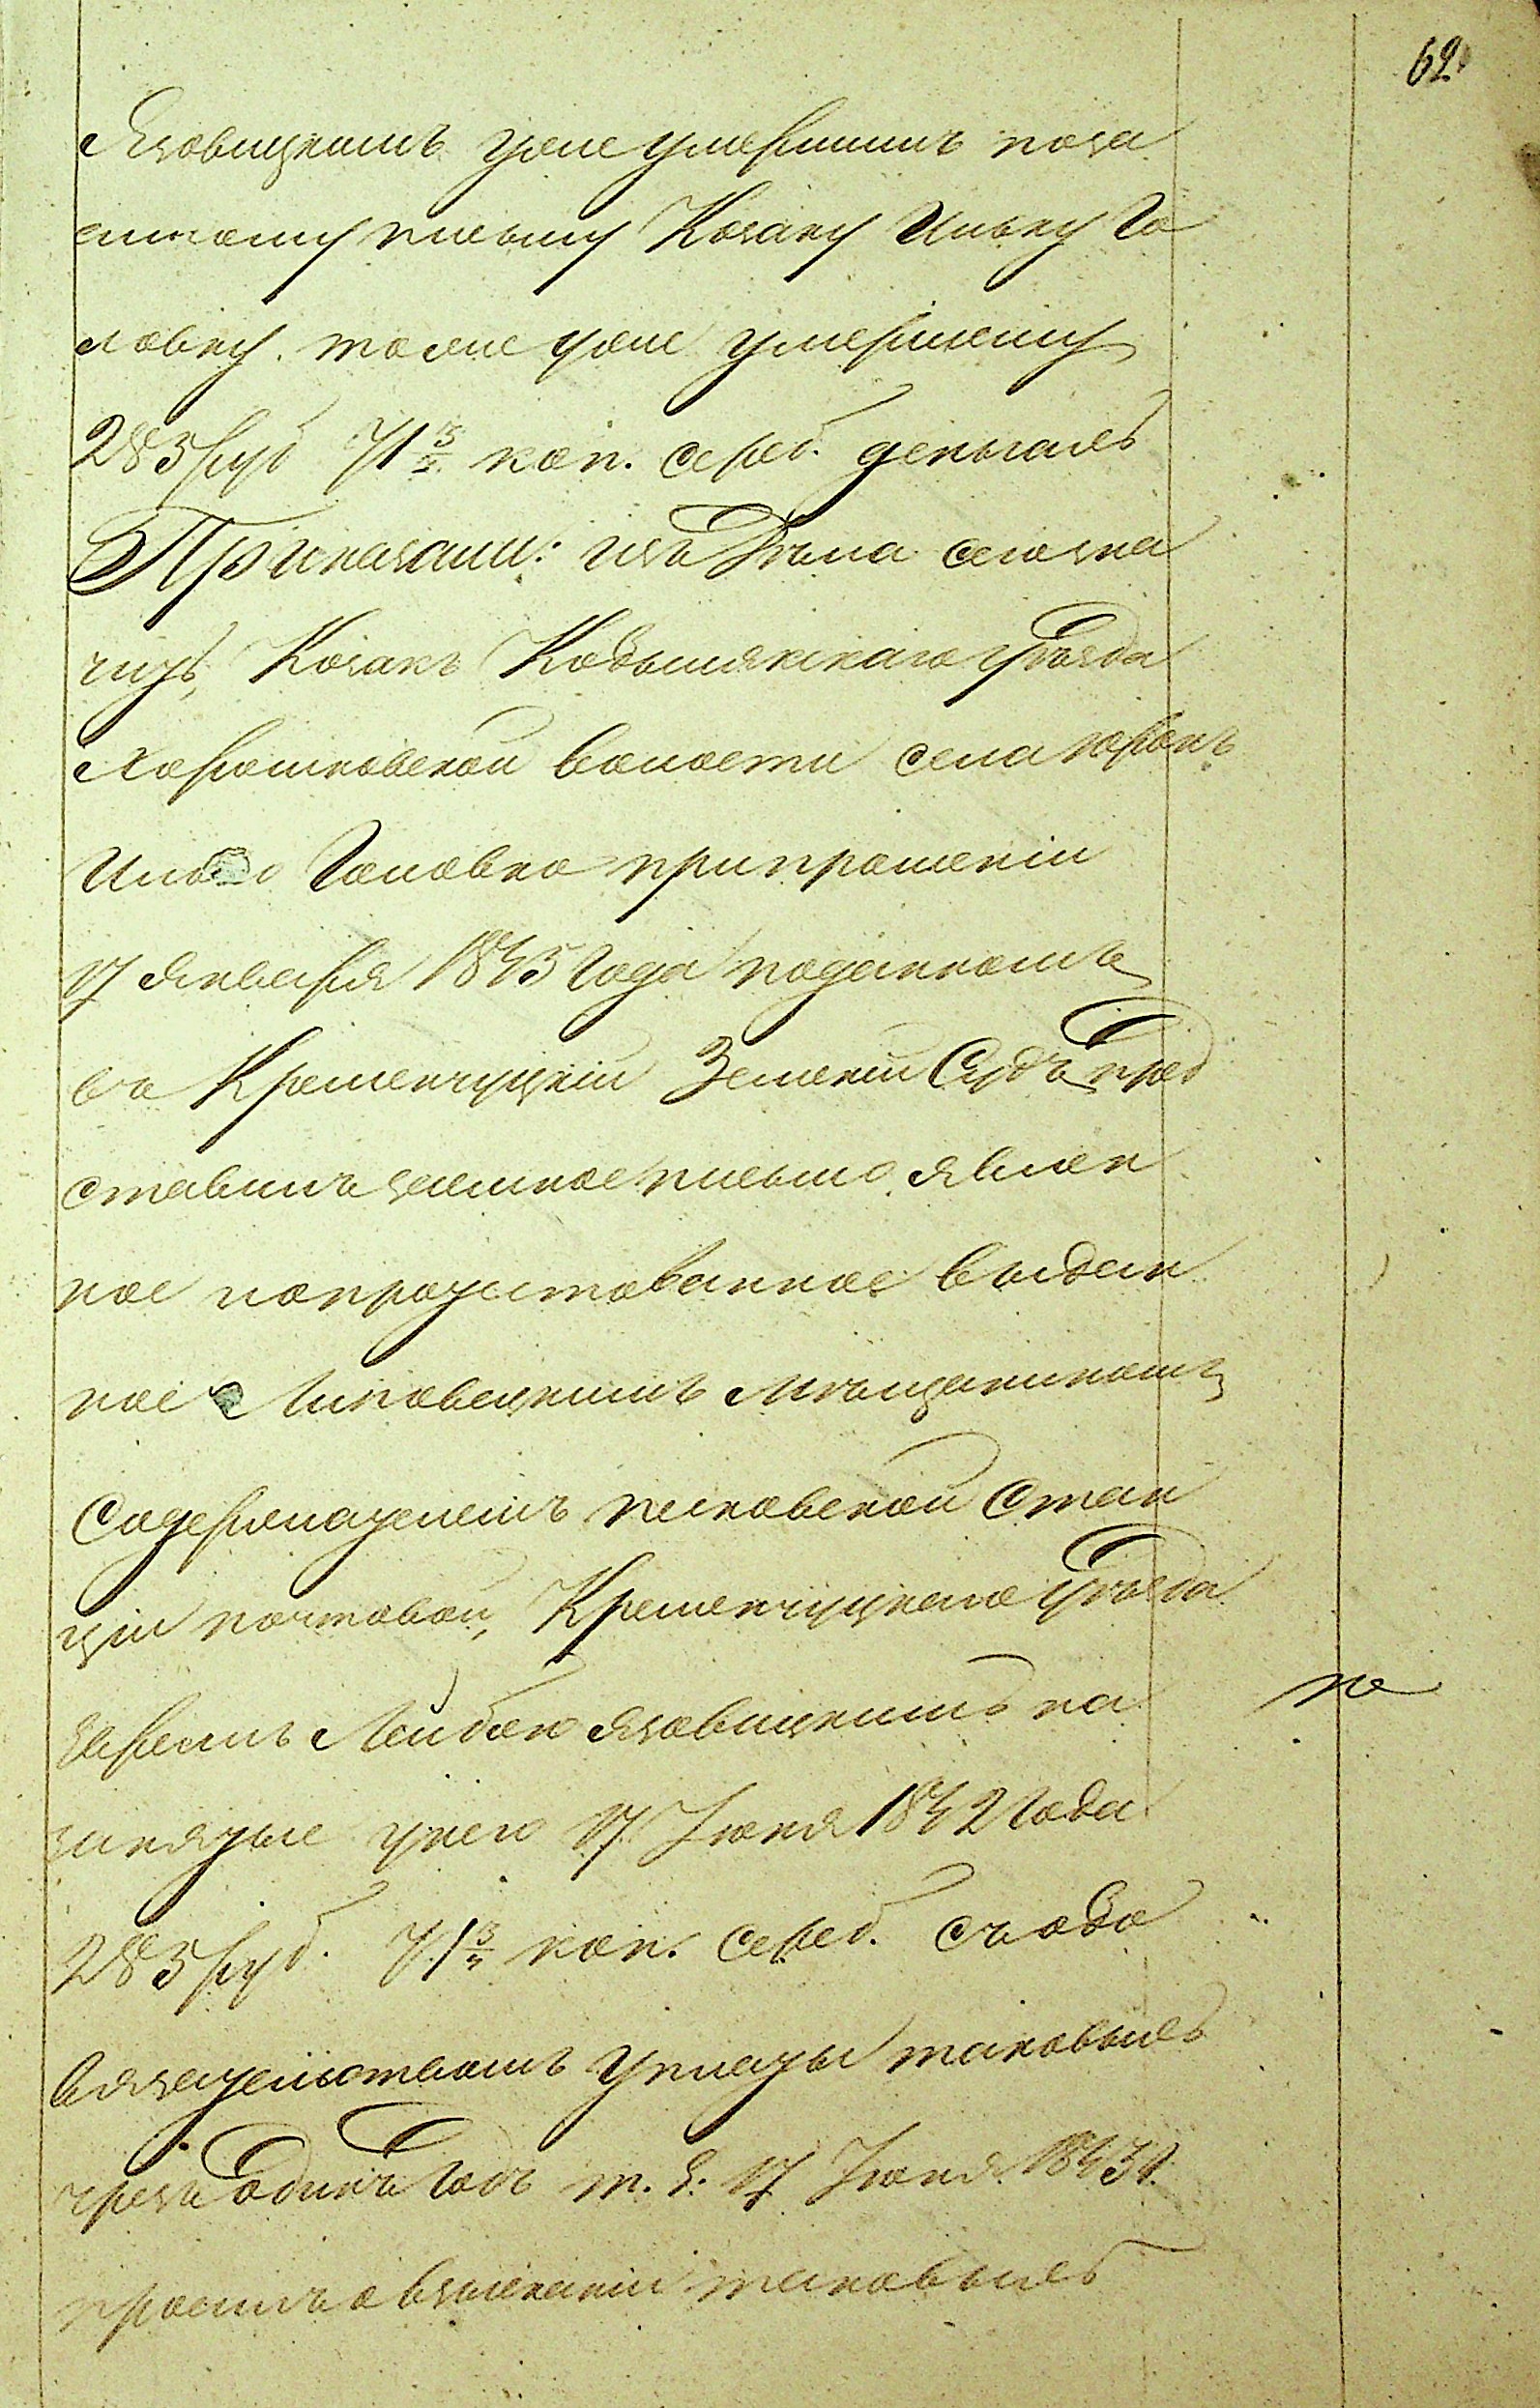 62
Язовицкимъ уже умершимъ поза
емному письму Козаку Ильку Го
ловку, тоже уже умершему
285 руб 71 3/7 коп. сереб. деньгахъ
Приказали: изъ дѣла сего зна
читъ, Козакъ Кобыляцкаго уѣзда
Хорошковской волости села
Илько Головко при прошеніи
17 Января 1843 Года поданномъ
въ Кременчуцкій Земскій Судъ пред
ставилъ заемное письмо явлен
ное и опротестованное выдан
ное Липовецкимъ Мѣщаниномъ
Содержателемъ песковской Стан
ціи почтовой, Кременчуцкаго уѣзда
Лейбою Язовицкимъ на
занятые у него 17 Іюня 1842 Года
285 руб. 71 3/7 коп. сереб. съ обо
вязательствомъ уплаты таковыхъ
чрезъ Одинъ Годъ т. е. 17 Іюня 1843 г.
просилъ о взысканіи таковыхъ
по